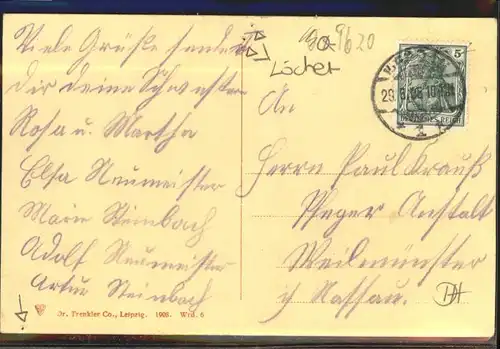 Viele Grüße senden
dir deine Schwester
Rosa u. Martha
Elsa Neumeister
Marie Steinbach
Adolf Neumeister
Artur Steinbach
Dr. Trenkler Co., Leipzig. 1908. Wrd. 6
9620
Löcher
5
DEUTSCHES REICH
An
Herrn Paul Krauß
Pfleger Anstalt
Weilmünster
i/ Nassau.